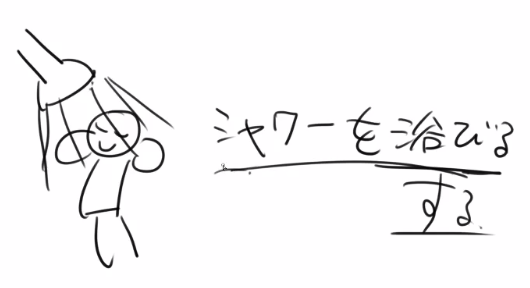 シャワーを浴びる
する